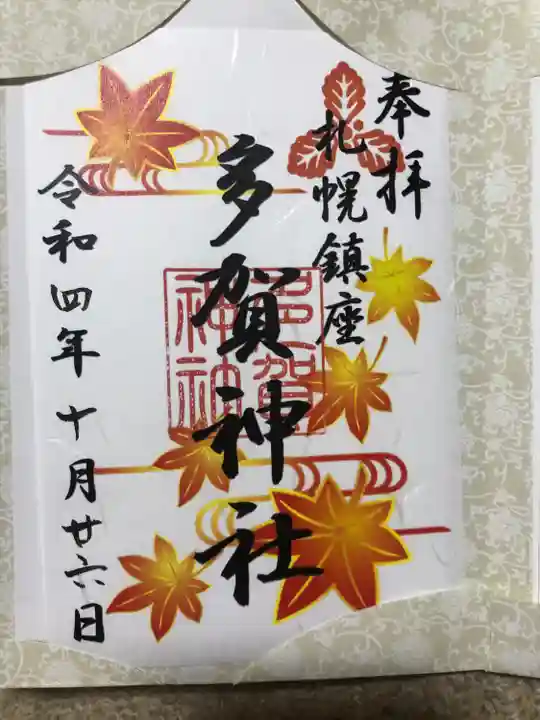 奉拝
札幌鎮座
多賀神社
多賀神社
令和四年十月廿六日